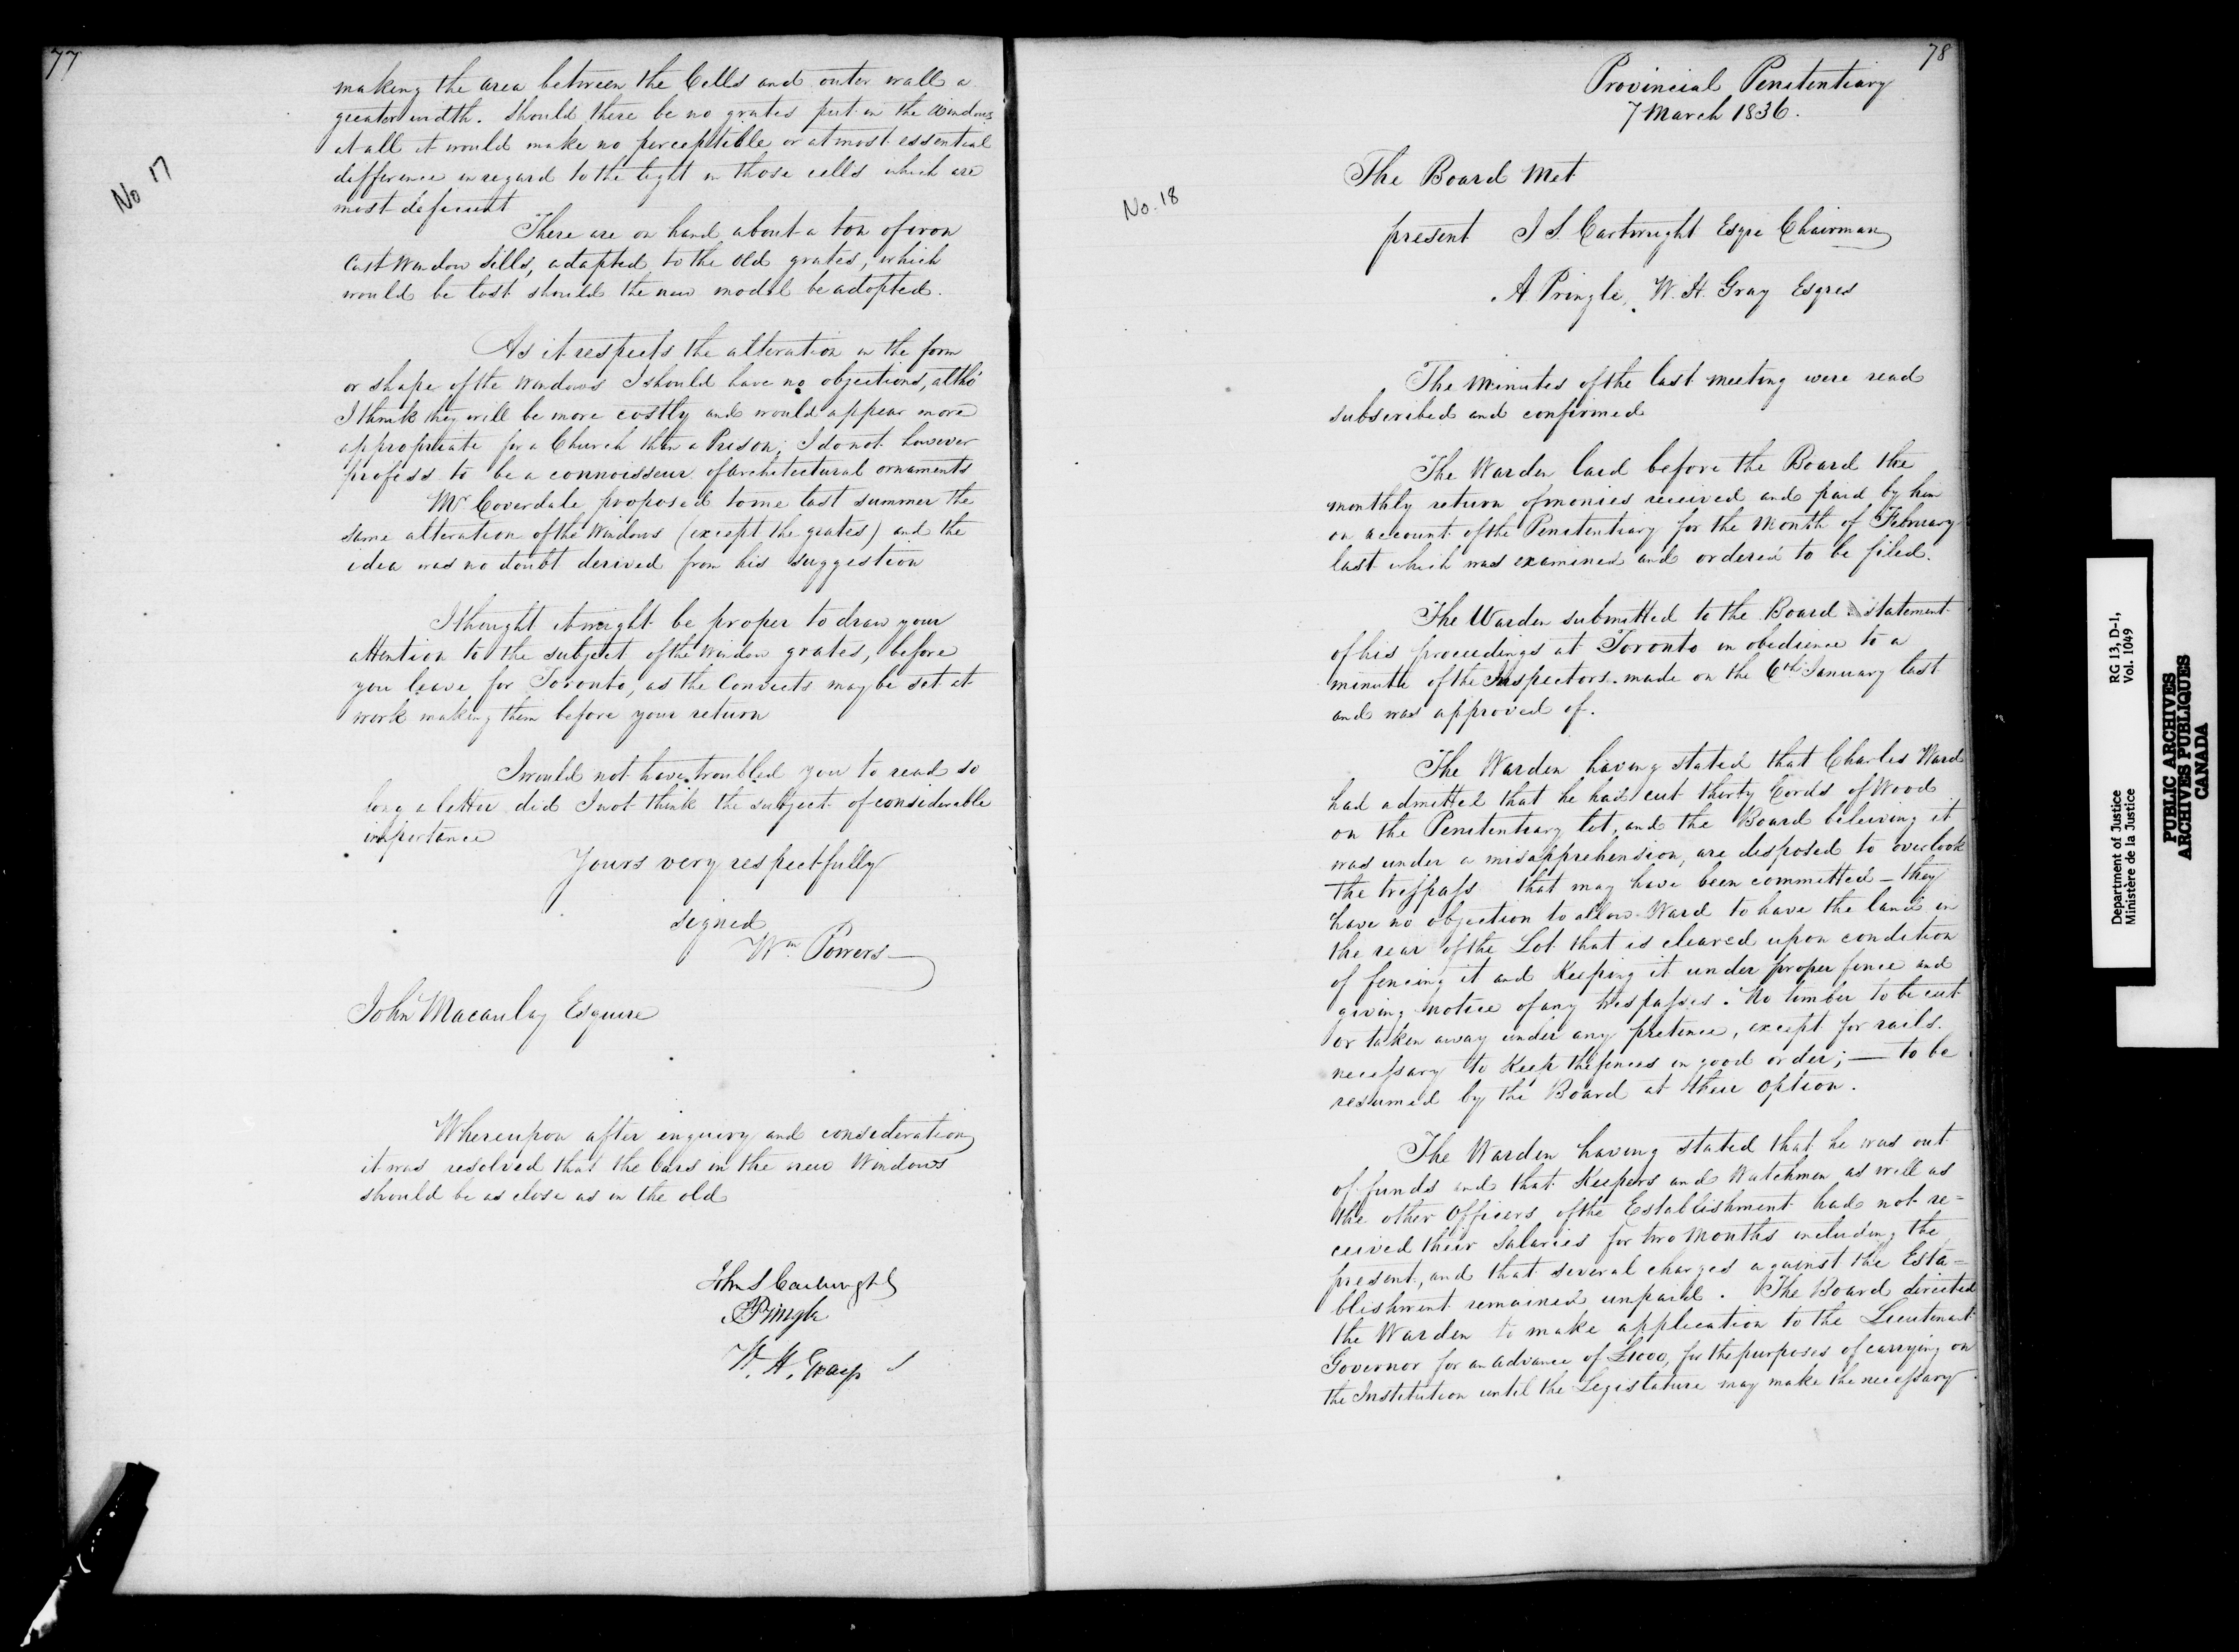 77
No 17
making the area between the Cells and outer wall a
greater width. Should there be no grates put in the Windows
at all it would make no perceptible or at most essential
difference in regard to the light in those cells which are
most deficient
There are on hand about a ton of iron
Cast Window Sills, adapted to the old grates, which
would be lost should the new model be adopted.
As it respects the alteration in the form
or shape of the Windows I should have no objections, altho'
I think they will be more costly and would appear more
appropriate for a Church than a Prison; I do not however
profess to be a connoisseur of architectural ornaments
Mr Coverdale proposed to me last summer the
same alteration of the Windows (except the grates) and the
idea was no doubt derived from his suggestion
I thought it might be proper to draw your
attention to the subject of the Window grates, before
you leave for Toronto, as the Convicts may be set at
work making them before your return
I would not have troubled you to read so
long a letter did I not think the subject of considerable
importance
Yours very respectfully
signed
Wm. Powers
John Macaulay Esquire
Whereupon after enquiry and consideration
it was resolved that the bars in the new Windows
should be as close as in the old
John S Cartwright
A Pringle
W. H. Gray
78
Provincial Penitentiary
7 March 1836.
No. 18
The Board Met
present J S. Cartwright Esqre Chairman
A. Pringle, W. H. Gray Esqres
The Minutes of the last meeting were read
subscribed and confirmed
The Warden laid before the Board the
monthly return of monies received and paid by him
on account of the Penitentiary for the Month of February
last which was examined and ordered to be filed.
The Warden submitted to the Board statement
of his proceedings at Toronto in obedience to a
minute of the Inspectors made on the 6th January last
and was approved of.
The Warden having stated that Charles Ward
had admitted that he had cut thirty Cords of Wood
on the Penitentiary lot, and the Board beleiving it
was under a misapprehension, are disposed to overlook
the trespass that may have been committed – they
have no objection to allow Ward to have the land in
the rear of the Lot that is cleared upon condition
of fencing it and Keeping it under proper fence and
giving notice of any trespasses. No timber to be cut
or taken away under any pretence, except for rails
necessary to Keep the fences in good order; — to be
resumed by the Board at their option.
The Warden having stated that he was out
of funds and that Keepers and Watchmen as well as
the other Officers of the Establishment had not re=
ceived their Salaries for two Months including the
present, and that several charges against the Esta=
blishment remained unpaid. The Board directed
the Warden to make application to the Lieutenant
Governor for an advance of £1000, for the purposes of carrying on
the Institution until the Legislature may make the necessary
Department of Justice RG 13, D-1,
Ministère de la Justice Vol. 1049
PUBLIC ARCHIVES
ARCHIVES PUBLIQUES
CANADA